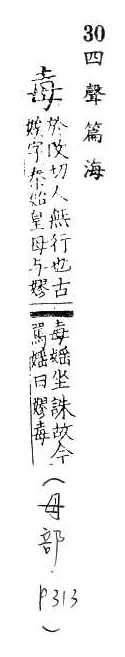 30 四聲篇海
毐
於改切人無行也古
字秦始皇母与嫪
毐婬坐誅故今
罵婬曰嫪毐
(母部.
P313)